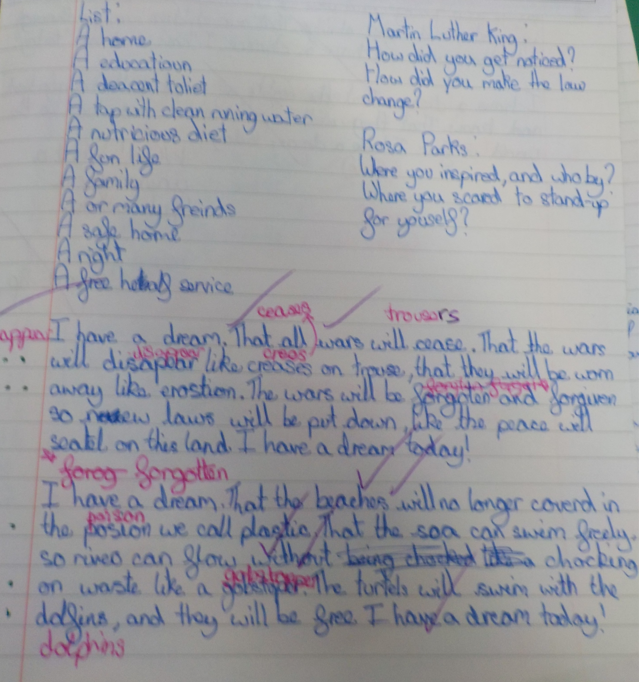 List:
A home
A edocatioun
A deacont toliet
A tap with clean rning water
A nutricious diet
A fun life
A family
A or many freinds
A safe home
A right
A free service
Martin Luther King:
How did you get noticed?
How did you make the law
change?
Rosa Parks:
Were you inspired, and who by?
Where you scared to stand-up
for youself?
ceases trousers
I have a dream. That all wars will cease. That the wars
disappear creas
well disapear like creases on trouse, that they will be worn
away like erostion. The wars will be forgoten and forgiven
so new laws will be put down, like the peace well
seatel on this land. I have a dream today!
* forog forgotten
I have a dream. That the beaches will no longer coverd in
poison
the postion we call plastic. That the saa can swim freely.
so rives can flow without being chocked chocking
gobstopper
on waste like a The turtels will swim with the
dolfins, and they will be free. I have a dream today!
dolphins